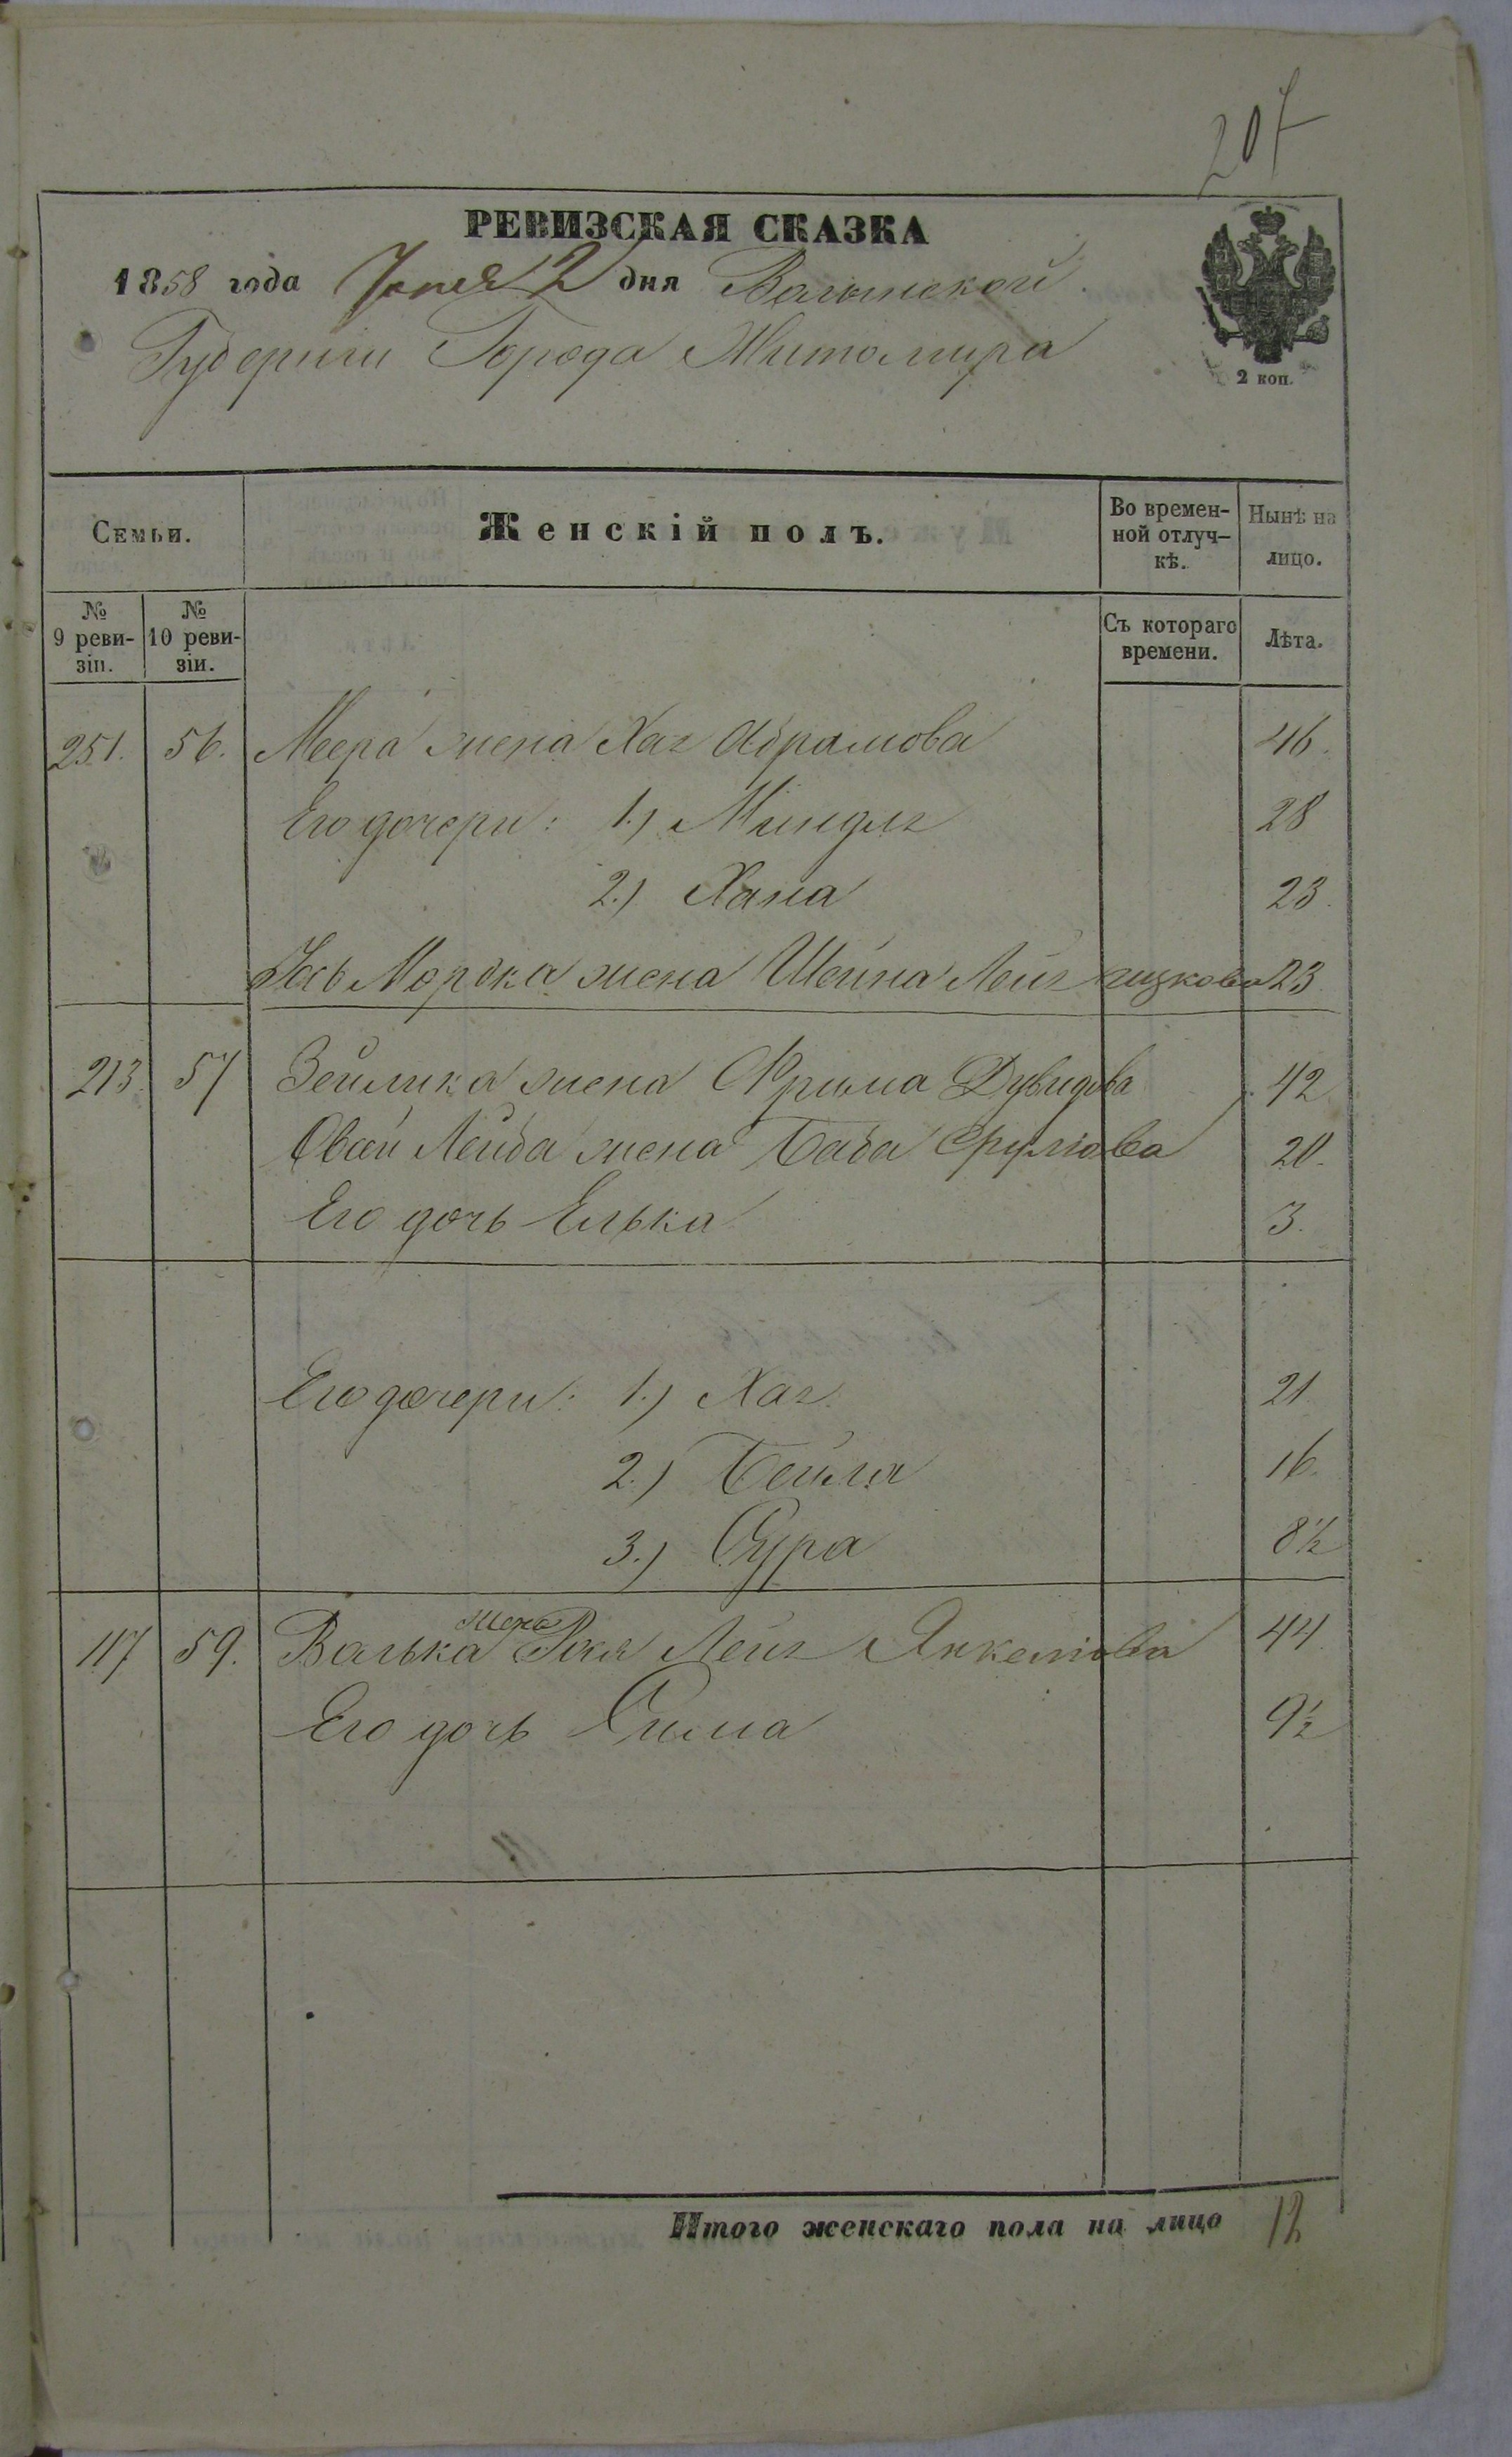 207
РЕВИЗСКАЯ СКАЗКА
1858 года Іюня 2 дня Волынской
Губерніи Города Житомира
2 коп.
Семьи.
Женскій полъ.
Во времен-
ной отлуч-
кѣ.
Нынѣ на
лицо.
№
9 реви-
зіи.
№
10 реви-
зіи.
Съ котораго
времени.
Лѣта.
251. 56. Меера жена Хая Абрамова 46.
Его дочери: 1.) Миндля 28
2.) Хана 23.
Мордка жена Шейна Лея Ицкова 23
213. 57 Зейлика жена Фрима Дувидова 42
Овсей Лейба жена Баба Срулiова 20.
Его дочь Елька 3.
Его дочери: 1.) Хая. 21
2.) Бейля 16.
3.) Сура 8½
117 59. Валька жена Лея Янкелiова 44.
Его дочь Сима 9½
Итого женскаго пола на лицо 12